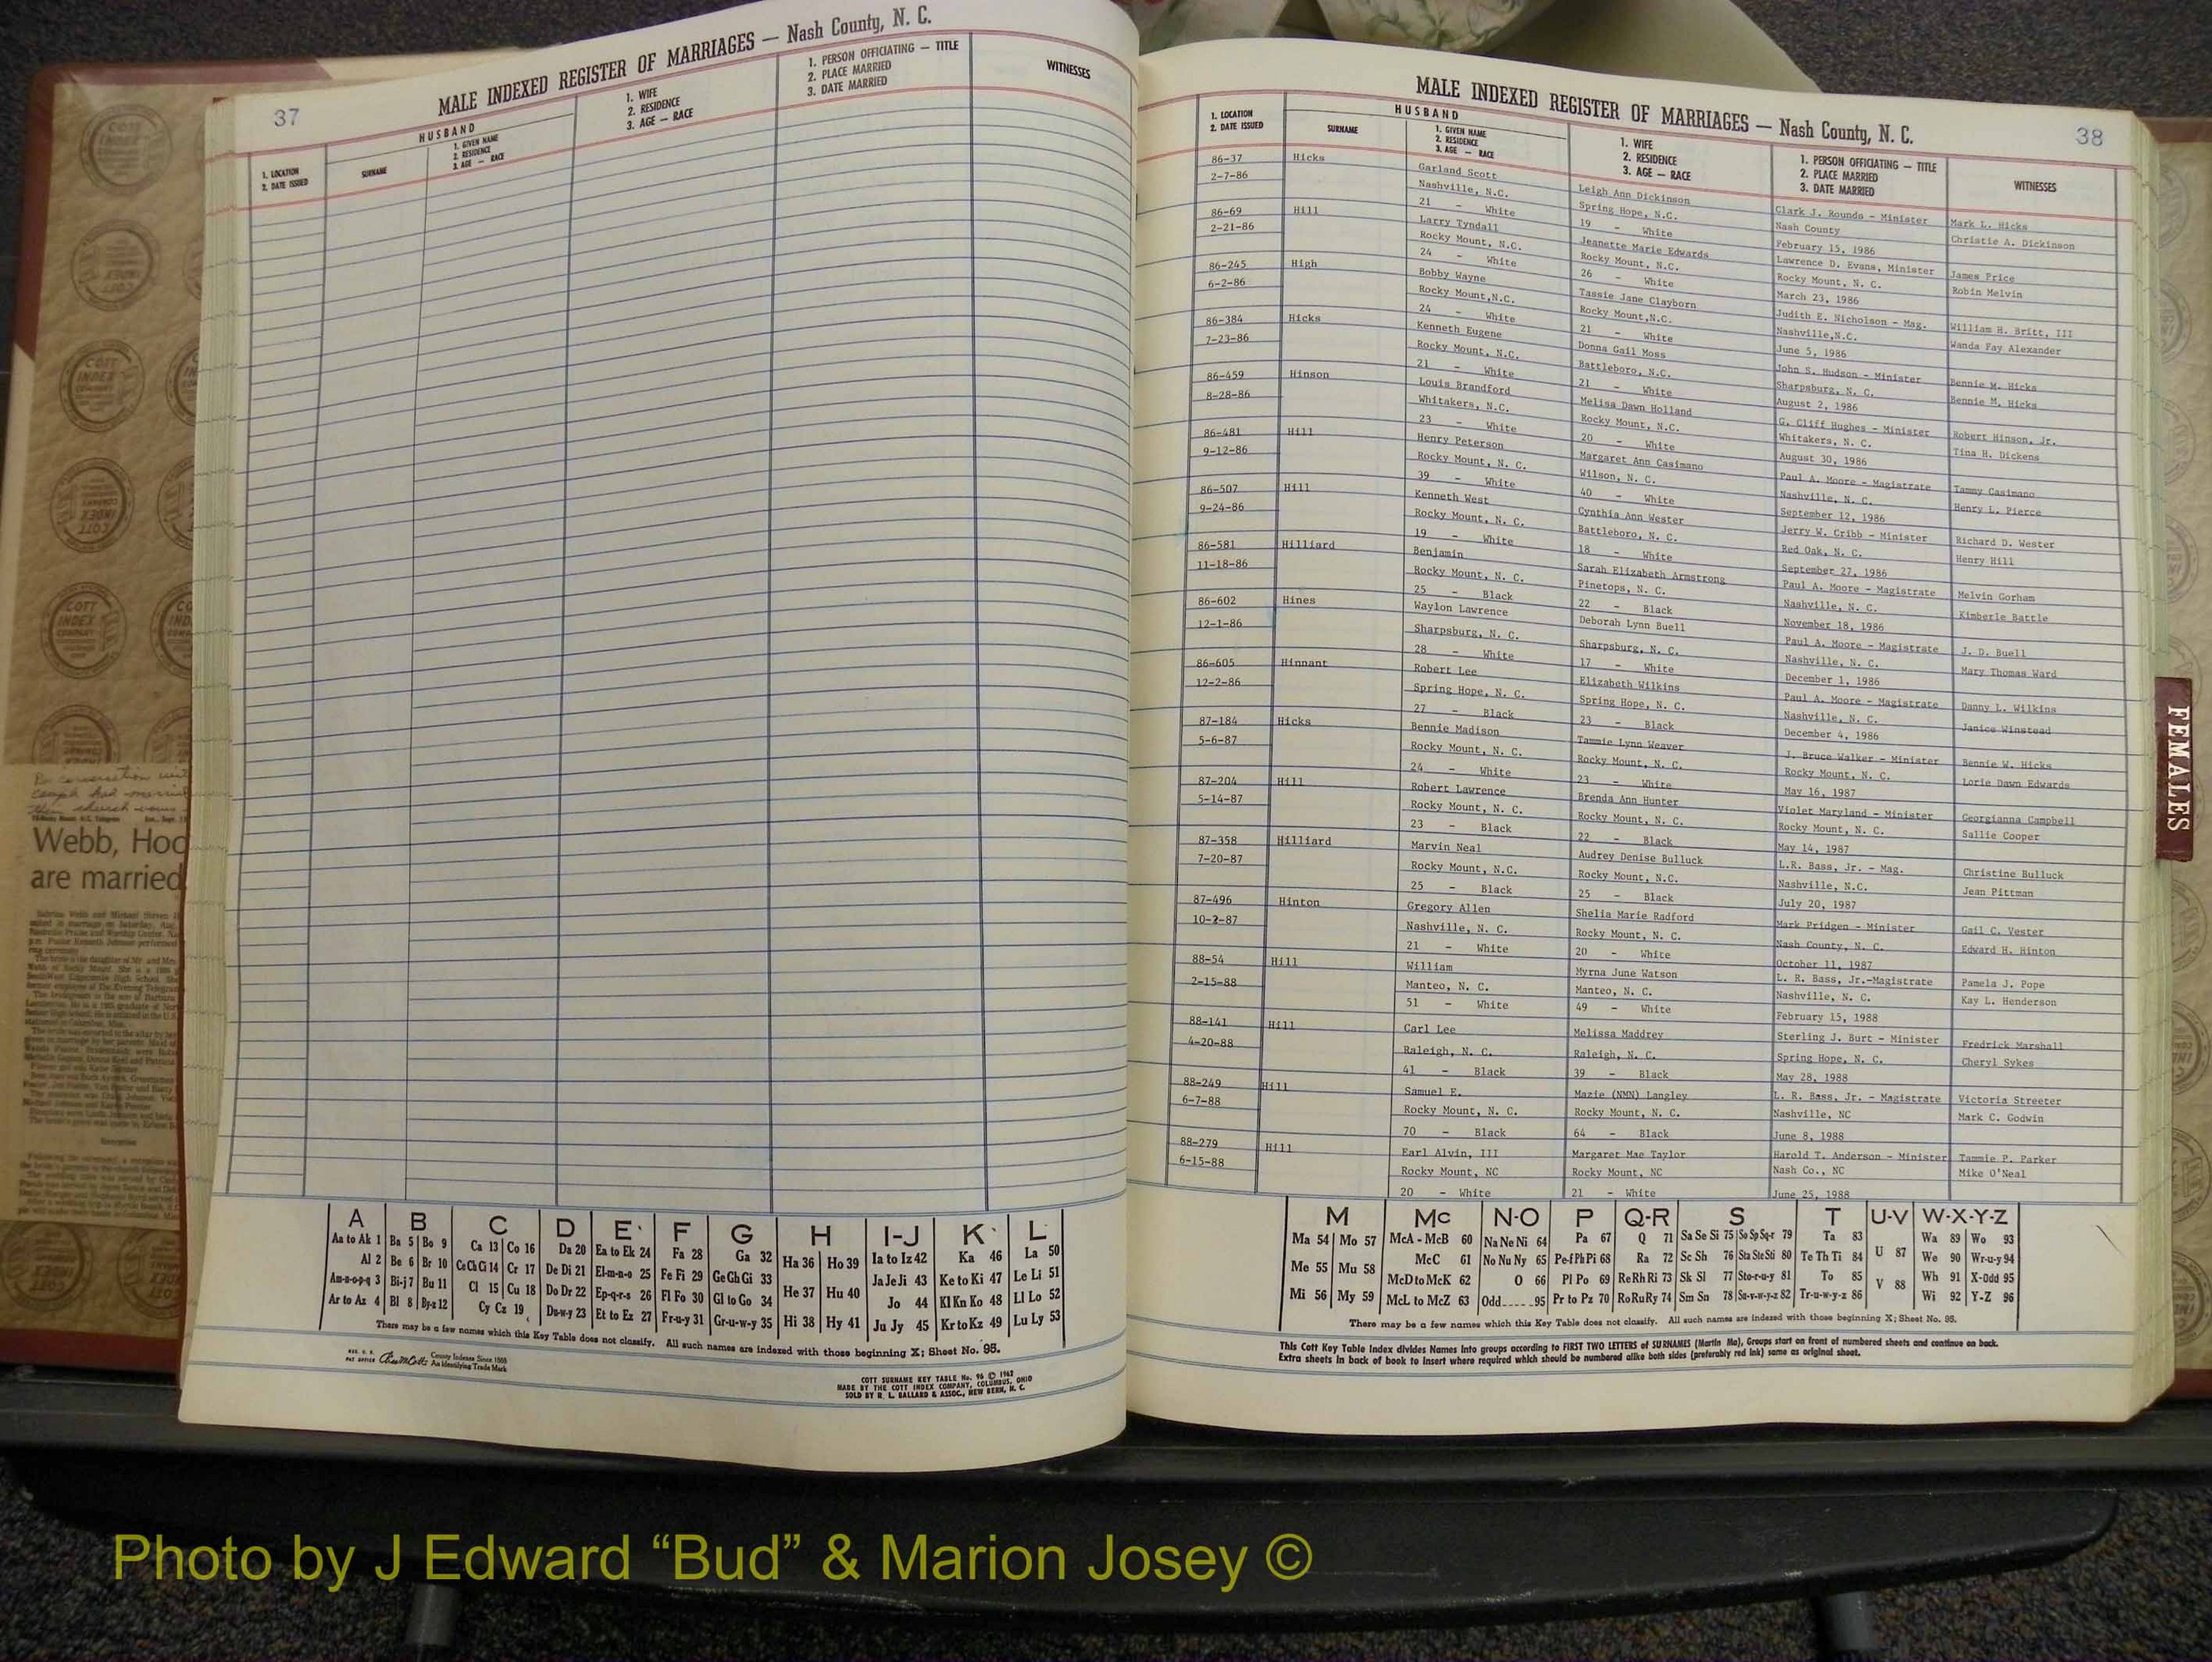 37
MALE INDEXED REGISTER OF MARRIAGES — Nash County, N. C.
1. LOCATION
2. DATE ISSUED
HUSBAND
SURNAME
1. GIVEN NAME
2. RESIDENCE
3. AGE — RACE
1. WIFE
2. RESIDENCE
3. AGE — RACE
1. PERSON OFFICIATING — TITLE
2. PLACE MARRIED
3. DATE MARRIED
WITNESSES
Webb, Hoo
are married
A B C D E F G H I-J K L
Aa to Ak 1 Ba 5 Bo 9 Ca 13 Co 16 Da 20 Ea to Ek 24 Fa 28 Ga 32 Ha 36 Ho 39 Ia to Iz 42 Ka 46 La 50
Al 2 Be 6 Br 10 Ce Ch Ci 14 Cr 17 De Di 21 El-m-n-o 25 Fe Fi 29 Ge Gh Gi 33 He 37 Hu 40 Ja Je Ji 43 Ke to Ki 47 Le Li 51
Am-n-o-p-q 3 Bi-j 7 Bu 11 Cl 15 Cu 18 Do Dr 22 Ep-q-r-s 26 Fl Fo 30 Gl to Go 34 Hi 38 Hy 41 Jo 44 Kl Kn Ko 48 Ll Lo 52
Ar to Az 4 Bl 8 By-z 12 Cy Cz 19 Du-w-y 23 Et to Ez 27 Fr-u-y 31 Gr-u-w-y 35 Ju Jy 45 Kr to Kz 49 Lu Ly 53
There may be a few names which this Key Table does not classify. All such names are indexed with those beginning X; Sheet No. 95.
County Indexes Since 1888
An Identifying Trade Mark
COTT SURNAME KEY TABLE No. 96 © 1962
MADE BY THE COTT INDEX COMPANY, COLUMBUS, OHIO
SOLD BY R. L. BALLARD & ASSOC., NEW BERN, N. C.
MALE INDEXED REGISTER OF MARRIAGES — Nash County, N. C.
38
1. LOCATION
2. DATE ISSUED
HUSBAND
SURNAME
1. GIVEN NAME
2. RESIDENCE
3. AGE — RACE
1. WIFE
2. RESIDENCE
3. AGE — RACE
1. PERSON OFFICIATING — TITLE
2. PLACE MARRIED
3. DATE MARRIED
WITNESSES
86-37 Hicks Garland Scott Leigh Ann Dickinson Clark J. Rounds - Minister Mark L. Hicks
2-7-86 Nashville, N.C. Spring Hope, N.C. Nash County Christie A. Dickinson
21 - White 19 - White February 15, 1986
86-69 Hill Larry Tyndall Jeanette Marie Edwards Lawrence D. Evans, Minister James Price
2-21-86 Rocky Mount, N.C. Rocky Mount, N.C. Rocky Mount, N. C. Robin Melvin
24 - White 26 - White March 23, 1986
86-245 High Bobby Wayne Tassie Jane Clayborn Judith E. Nicholson - Mag. William H. Britt, III
6-2-86 Rocky Mount,N.C. Rocky Mount,N.C. Nashville,N.C. Wanda Fay Alexander
24 - White 21 - White June 5, 1986
86-384 Hicks Kenneth Eugene Donna Gail Moss John S. Hudson - Minister Bennie M. Hicks
7-23-86 Rocky Mount, N.C. Battleboro, N.C. Sharpsburg, N. C. Bennie M. Hicks
21 - White 21 - White August 2, 1986
86-459 Hinson Louis Brandford Melisa Dawn Holland G. Cliff Hughes - Minister Robert Hinson, Jr.
8-28-86 Whitakers, N.C. Rocky Mount, N.C. Whitakers, N. C. Tina H. Dickens
23 - White 20 - White August 30, 1986
86-481 Hill Henry Peterson Margaret Ann Casimano Paul A. Moore - Magistrate Tammy Casimano
9-12-86 Rocky Mount, N. C. Wilson, N. C. Nashville, N. C. Henry L. Pierce
39 - White 40 - White September 12, 1986
86-507 Hill Kenneth West Cynthia Ann Wester Jerry W. Cribb - Minister Richard D. Wester
9-24-86 Rocky Mount, N. C. Battleboro, N. C. Red Oak, N. C. Henry Hill
19 - White 18 - White September 27, 1986
86-581 Hilliard Benjamin Sarah Elizabeth Armstrong Paul A. Moore - Magistrate Melvin Gorham
11-18-86 Rocky Mount, N. C. Pinetops, N. C. Nashville, N. C. Kimberle Battle
25 - Black 22 - Black November 18, 1986
86-602 Hines Waylon Lawrence Deborah Lynn Buell Paul A. Moore - Magistrate J. D. Buell
12-1-86 Sharpsburg, N. C. Sharpsburg, N. C. Nashville, N. C. Mary Thomas Ward
28 - White 17 - White December 1, 1986
86-605 Hinnant Robert Lee Elizabeth Wilkins Paul A. Moore - Magistrate Danny L. Wilkins
12-2-86 Spring Hope, N. C. Spring Hope, N. C. Nashville, N. C. Janice Winstead
27 - Black 23 - Black December 4, 1986
87-184 Hicks Bennie Madison Tammie Lynn Weaver J. Bruce Walker - Minister Bennie W. Hicks
5-6-87 Rocky Mount, N. C. Rocky Mount, N. C. Rocky Mount, N. C. Lorie Dawn Edwards
24 - White 23 - White May 16, 1987
87-204 Hill Robert Lawrence Brenda Ann Hunter Violet Maryland - Minister Georgianna Campbell
5-14-87 Rocky Mount, N. C. Rocky Mount, N. C. Rocky Mount, N. C. Sallie Cooper
23 - Black 22 - Black May 14, 1987
87-358 Hilliard Marvin Neal Audrey Denise Bulluck L.R. Bass, Jr. - Mag. Christine Bulluck
7-20-87 Rocky Mount, N.C. Rocky Mount, N.C. Nashville, N.C. Jean Pittman
25 - Black 25 - Black July 20, 1987
87-496 Hinton Gregory Allen Shelia Marie Radford Mark Pridgen - Minister Gail C. Vester
10-2-87 Nashville, N. C. Rocky Mount, N. C. Nash County, N. C. Edward H. Hinton
21 - White 20 - White October 11, 1987
88-54 Hill William Myrna June Watson L. R. Bass, Jr.-Magistrate Pamela J. Pope
2-15-88 Manteo, N. C. Manteo, N. C. Nashville, N. C. Kay L. Henderson
51 - White 49 - White February 15, 1988
88-141 Hill Carl Lee Melissa Maddrey Sterling J. Burt - Minister Fredrick Marshall
4-20-88 Raleigh, N. C. Raleigh, N. C. Spring Hope, N. C. Cheryl Sykes
41 - Black 39 - Black May 28, 1988
88-249 Hill Samuel E. Mazie (NMN) Langley L. R. Bass, Jr. - Magistrate Victoria Streeter
6-7-88 Rocky Mount, N. C. Rocky Mount, N. C. Nashville, NC Mark C. Godwin
70 - Black 64 - Black June 8, 1988
88-279 Hill Earl Alvin, III Margaret Mae Taylor Harold T. Anderson - Minister Tammie P. Parker
6-15-88 Rocky Mount, NC Rocky Mount, NC Nash Co., NC Mike O'Neal
20 - White 21 - White June 25, 1988
M Mc N-O P Q-R S T U-V W-X-Y-Z
Ma 54 Mo 57 McA - McB 60 Na Ne Ni 64 Pa 67 Q 71 Sa Se Si 75 So Sp Sq-r 79 Ta 83 Wa 89 Wo 93
Me 55 Mu 58 McC 61 No Nu Ny 65 Pe-f Ph Pi 68 Ra 72 Sc Sh 76 Sta Ste Sti 80 Te Th Ti 84 U 87 We 90 Wr-u-y 94
McD to McK 62 O 66 Pl Po 69 Re Rh Ri 73 Sk Sl 77 Sto-r-u-y 81 To 85 V 88 Wh 91 X-Odd 95
Mi 56 My 59 McL to McZ 63 Odd.....95 Pr to Pz 70 Ro Ru Ry 74 Sm Sn 78 Su-v-w-y-z 82 Tr-u-w-y-z 86 Wi 92 Y-Z 96
There may be a few names which this Key Table does not classify. All such names are indexed with those beginning X; Sheet No. 95.
This Cott Key Table Index divides Names into groups according to FIRST TWO LETTERS of SURNAMES (Martin Ma), Groups start on front of numbered sheets and continue on back.
Extra sheets in back of book to insert where required which should be numbered alike both sides (preferably red ink) same as original sheet.
FEMALES
Photo by J Edward “Bud” & Marion Josey ©